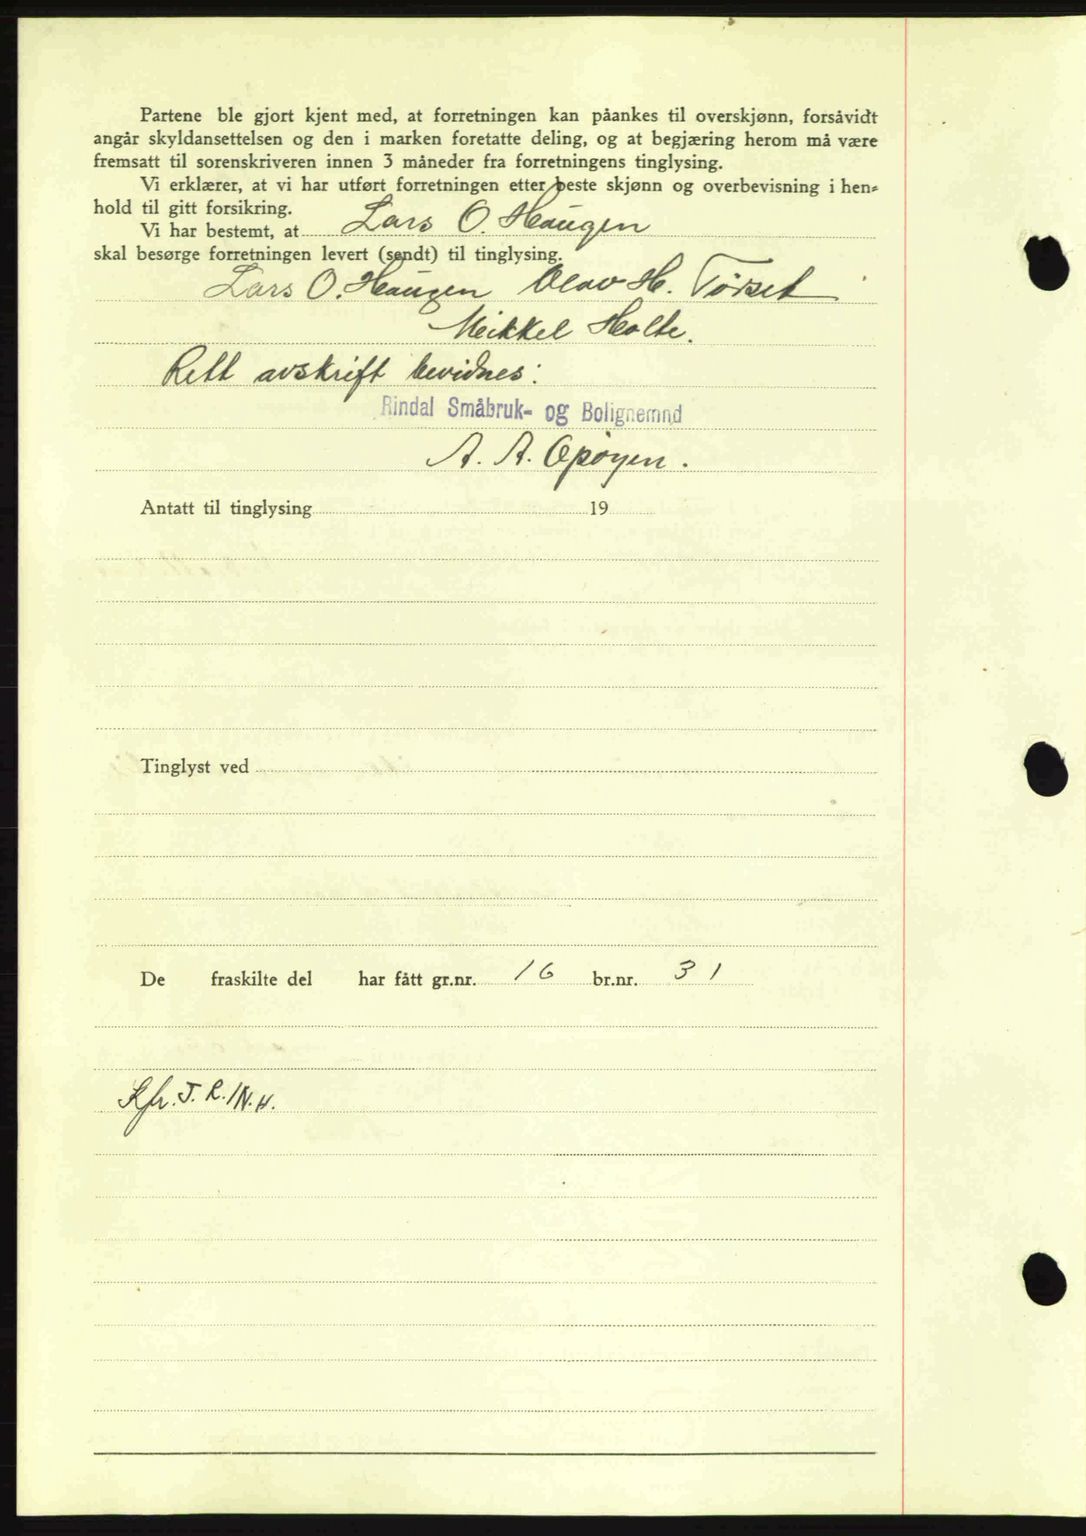 Partene ble gjort kjent med, at forretningen kan påankes til overskjønn, forsåvidt
angår skyldansettelsen og den i marken foretatte deling, og at begjæring herom må være
fremsatt til sorenskriveren innen 3 måneder fra forretningens tinglysing.
Vi erklærer, at vi har utført forretningen etter beste skjønn og overbevisning i hen-
hold til gitt forsikring.
Vi har bestemt, at Lars O. Haugen
skal besørge forretningen levert (sendt) til tinglysing.
Lars O. Haugen Olav H. Tørset
Mikkel Holte.
Rett avskrift bevidnes:
Rindal Småbruk- og Bolignemnd
A. A. Opøyen.
Antatt til tinglysing 19
Tinglyst ved
De fraskilte del har fått gr.nr. 16 br.nr. 31
Kfr. J. R./N.H.